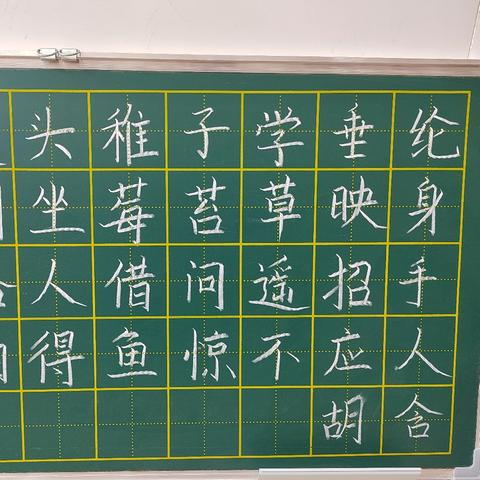 头稚子学垂纶
坐莓苔草映身
人借问遥招手
得鱼惊不应人
胡含